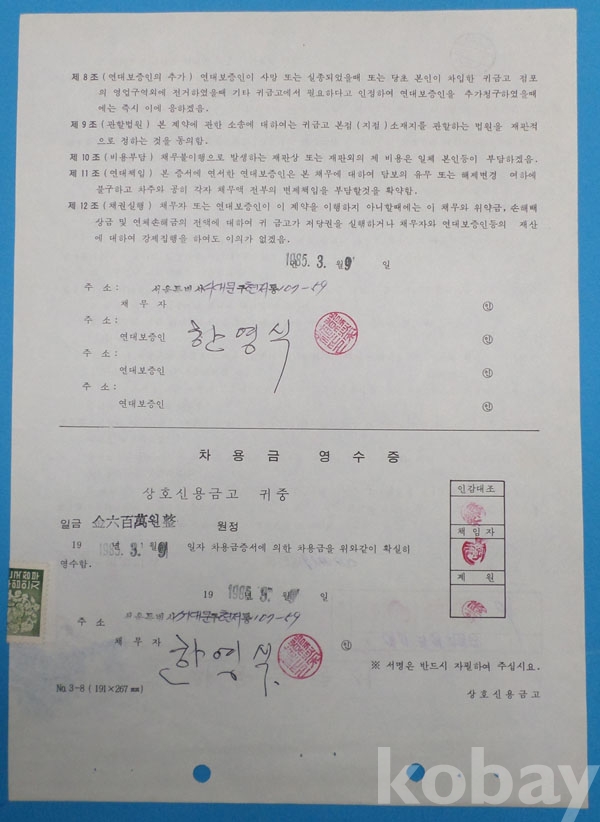 제 8 조 (연대보증인의 추가) 연대보증인이 사망 또는 실종되었을때 또는 당초 본인이 차입한 귀금고 점포
의 영업구역외에 전거하였을때 기타 귀금고에서 필요하다고 인정하여 연대보증인을 추가청구하였을때
에는 즉시 이에 응하겠음.
제 9 조 (관할법원) 본 계약에 관한 소송에 대하여는 귀금고 본점 (지점) 소재지를 관할하는 법원을 재판적
으로 정하는 것을 동의함.
제 10 조 (비용부담) 채무불이행으로 발생하는 재판상 또는 재판외의 제 비용은 일체 본인등이 부담하겠음.
제 11 조 (연대책임) 본 증서에 연서한 연대보증인은 본 채무에 대하여 담보의 유무 또는 해제변경 여하에
불구하고 차주와 공히 각자 채무액 전부의 변제책임을 부담할것을 확약함.
제 12 조 (채권실행) 채무자 또는 연대보증인이 이 계약을 이행하지 아니할때에는 이 채무와 위약금, 손해배
상금 및 연체손해금의 전액에 대하여 귀 금고가 저당권을 실행하거나 채무자와 연대보증인등의 재산
에 대하여 강제집행을 하여도 이의가 없겠음.
1985. 3. 월 9 일
주 소 : 107-59
채 무 자 ㊞
주 소 :
연대보증인 한영식 ㊞
주 소 :
연대보증인 ㊞
주 소 :
연대보증인 ㊞
차 용 금 영 수 증
상호신용금고 귀중
일금 金六百萬원整 원정
19 1985. 3. 월 9 일자 차용금증서에 의한 차용금을 위와같이 확실히
영수함.
19 월 일
주 소 107-59
채 무 자 한영식 ㊞
인감대조
책 임 자
계 원
※ 서명은 반드시 자필하여 주십시요.
No. 3-8 (191×267㎜)
상호신용금고
kobay